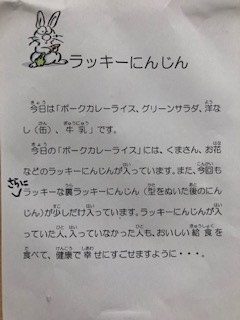 ラッキーにんじん
今日は「ポークカレーライス、グリーンサラダ、洋な
し(缶)、牛乳」です。
今日の「ポークカレーライス」には、くまさん、お花
などのラッキーにんじんが入っています。また、今回も
さらに
ラッキーな裏ラッキーにんじん(型をぬいた後のにん
じん)が少しだけ入っています。ラッキーにんじんが入
っていた人、入っていなかった人も、おいしい給食を
食べて、健康で幸せにすごせますように・・・。